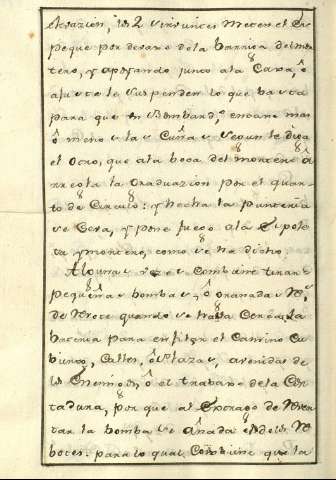 elevazion, los 2 sirvientes meten el Es-
peque por devaxo dela barriga del mor-
tero, y apoyando junto ala Caxa, ô
ajuste le suspenden lo que basta
para que el Bombardº encaxe mas
ô menos las Cuñas segun le diga
el otro, que ala boca del mortero â
rregla la Graduazion por el quar-
to de Circulo: y hecha la punteria
se Ceva, y pone fuego ala Espole-
ta y mortero, como se ha dicho.
Algunas vezes combiene tirar
pequeñas bombas, ô Granadas Rˢ
de Revote quando se trata Cerca la
bateria para enfilar el Camino Cu-
bierto, Calles, ô Plazas, avenidas de
los Enemigos, ô el trabajo dela Cor-
tadura, por que al Estrago de Reven-
tar la bomba se añade el de los Re
botes: para lo qual Combiene que la